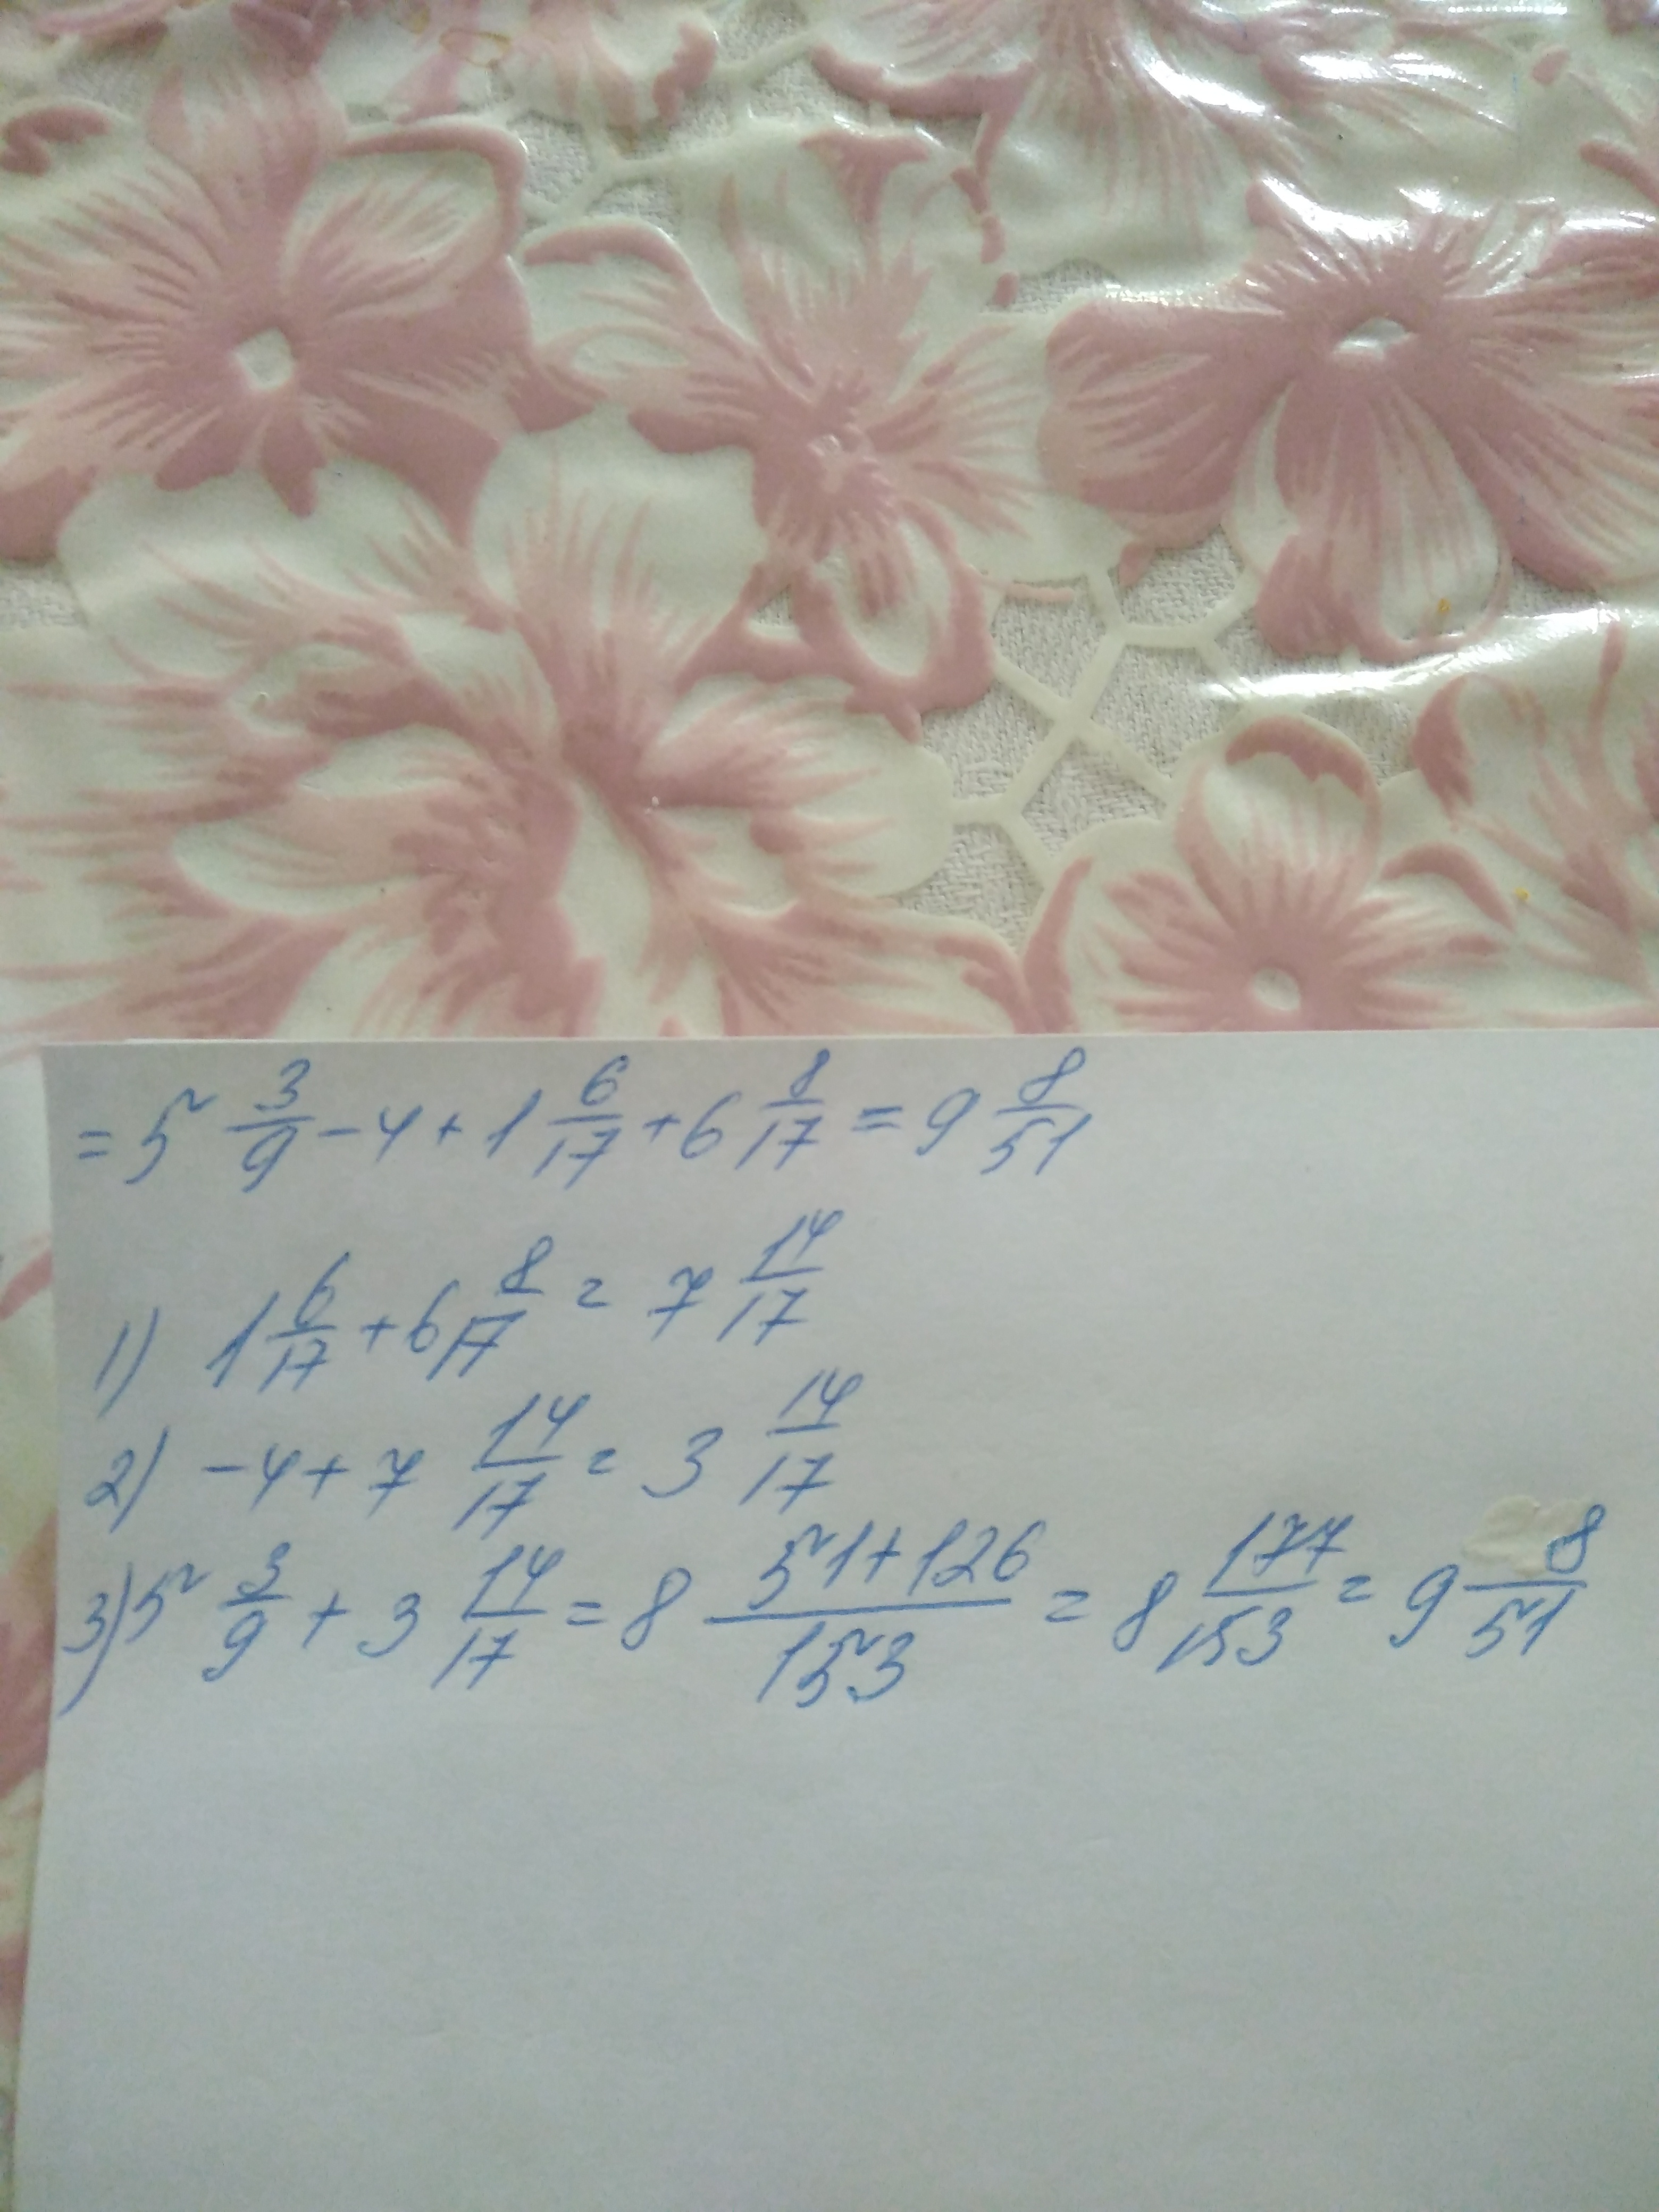 = 5 3/9 - 4 + 1 6/17 + 6 8/17 = 9 8/51
1) 1 6/17 + 6 8/17 = 7 14/17
2) - 4 + 7 14/17 = 3 14/17
3) 5 3/9 + 3 14/17 = 8 51+126/153 = 8 177/153 = 9 8/51